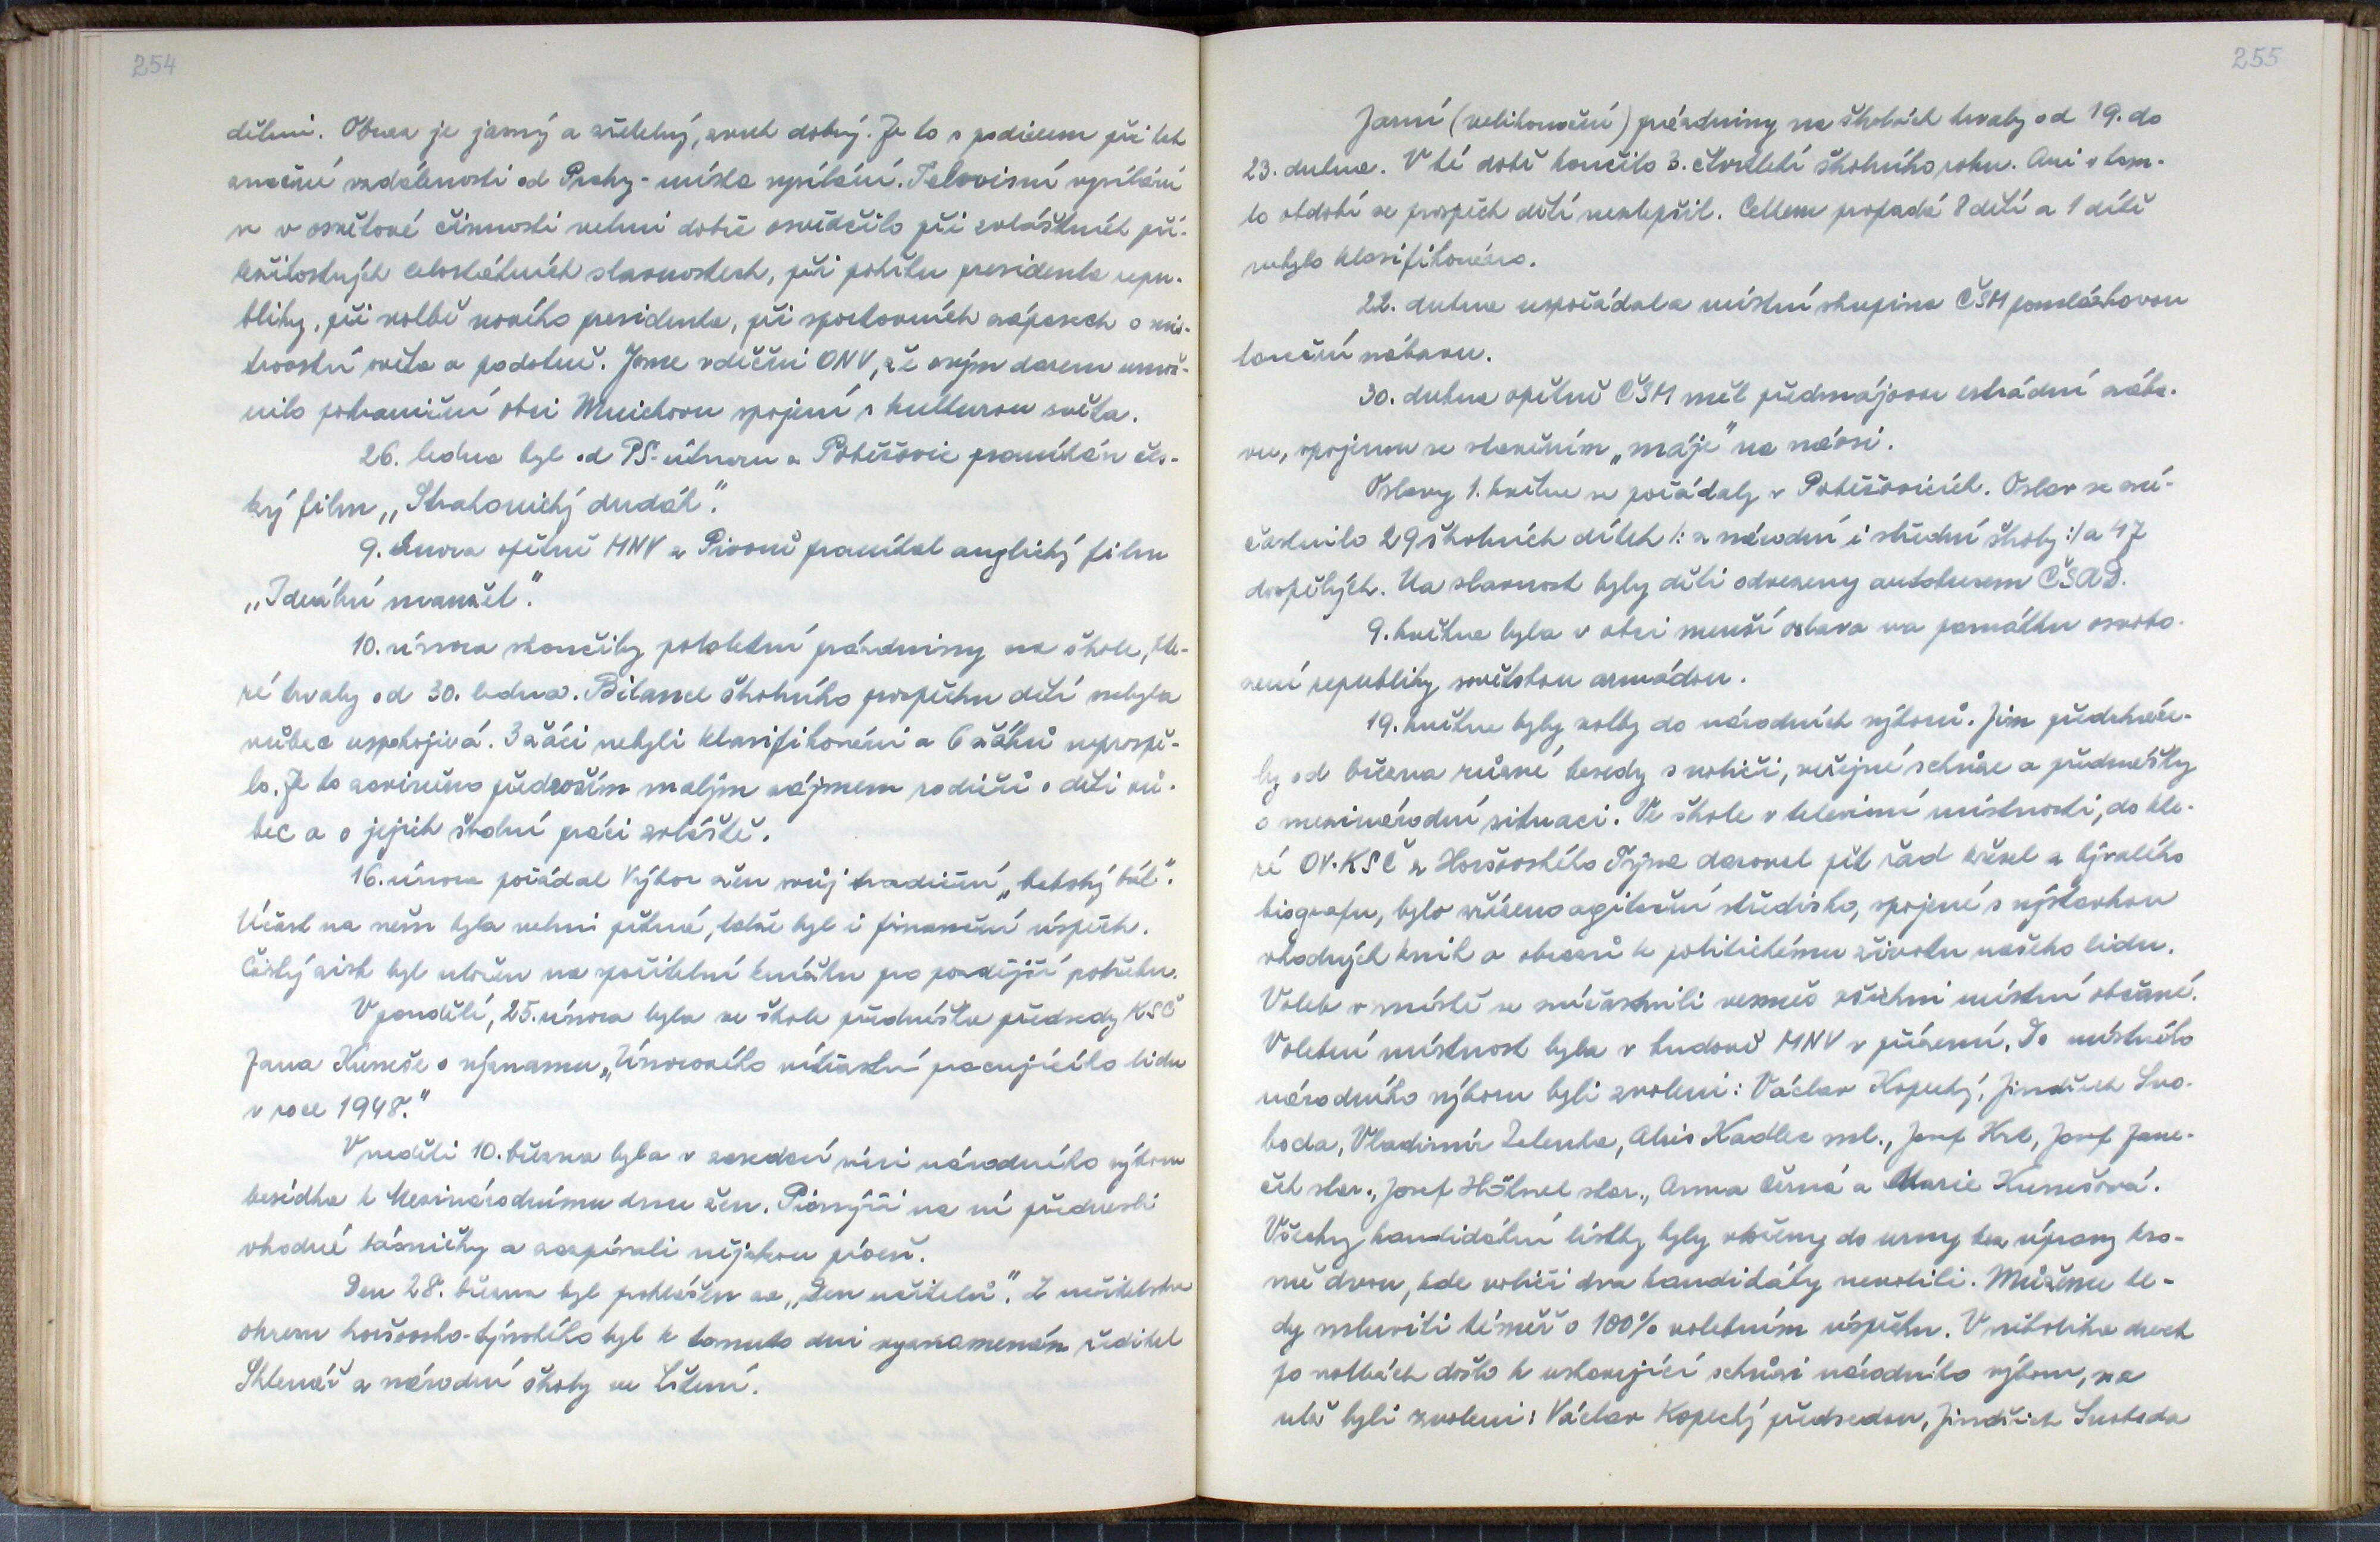 254
dělení. Obraz je jasný a zřetelný, zvuk dobrý. Je to s podivem při tak
značné vzdálenosti od Prahy - místa vysílání. Televisní vysílání
se v osvětové činnosti velmi dobře osvědčilo při zvláštních pří-
ležitostných celostátních slavnostech, při pohřbu presidenta repu-
bliky, při volbě nového presidenta, při sportovních zápasech o mis-
trovství světa a podobně. Jsme vděčni ONV, že svým darem umož-
nilo pohraniční obci Mnichovu spojení s kulturou světa.
26. ledna byl od PS-útvaru z Poběžovic promítán čes-
ký film „Strakonický dudák".
9. února opětně MNV z Pivoně promítal anglický film
„Ideální manžel".
10. února skončily pololetní prázdniny na škole, kte-
ré trvaly od 30. ledna. Bilance školního prospěchu dětí nebyla
vůbec uspokojivá. 3 žáci nebyli klasifikováni a 6 žáků neprospě-
lo. Je to zaviněno především malým zájmem rodičů o děti vů-
bec a o jejich školní práci zvláště.
16. února pořádal Výbor žen svůj tradiční „babský bál".
Účast na něm byla velmi pěkná, také byl i finanční úspěch.
Čistý zisk byl uložen na spořitelní knížku pro pozdější potřebu.
V pondělí, 25. února byla ve škole přednáška předsedy KSČ
Jana Kuneše o významu „Únorového vítězství pracujícího lidu
v roce 1948."
V neděli 10. března byla v zasedací síni národního výboru
besídka k Mezinárodnímu dnu žen. Pionýři na ní přednesli
vhodné básničky a zazpívali nějakou píseň.
Den 28. března byl prohlášen za „Den učitelů". Z učitelstva
okresu horšovsko-týnského byl k tomuto dni vyznamenán ředitel
Sklenář z národní školy ve Štítarech.
255
Jarní (velikonoční) prázdniny na školách trvaly od 19. do
23. dubna. V té době končilo 3. čtvrtletí školního roku. Ani v tom-
to období se prospěch dětí nezlepšil. Celkem propadá 8 dětí a 1 dítě
nebylo klasifikováno.
22. dubna uspořádala místní skupina ČSM pomlázkovou
taneční zábavu.
30. dubna opětně ČSM měl předmájovou estrádní zába-
vu, spojenou se stavěním „máje" na návsi.
Oslavy 1. května se pořádaly v Poběžovicích. Oslav se zú-
častnilo 29 školních dítek /: z národní i střední školy :/ a 47
dospělých. Na slavnost byly děti odvezeny autobusem ČSAD.
9. května byla v obci menší oslava na památku osvobo-
zení republiky sovětskou armádou.
19. května byly volby do národních výborů. Jim předcháze-
ly od března různé besedy s voliči, veřejné schůze a přednášky
o mezinárodní situaci. Ve škole v televisní místnosti, do kte-
ré OV-KSČ z Horšovského Týna daroval pět řad křesel z bývalého
biografu, bylo zřízeno agitační středisko, spojené s výstavkou
vhodných knih a obrazů k politickému životu našeho lidu.
Voleb v místě se zúčastnili vesměs všichni místní občané.
Volební místnost byla v budově MNV v přízemí. Do místního
národního výboru byli zvoleni: Václav Kopecký, Jindřich Svo-
boda, Vladimír Zelenka, Alois Kadlec ml., Josef Hrt, Josef Jane-
ček star., Josef Hölzel star., Anna Černá a Marie Kunešová.
Všechny kandidátní lístky byly vloženy do urny bez úpravy kro-
mě dvou, kde voliči dva kandidáty nevolili. Můžeme te-
dy mluviti téměř o 100% volebním úspěchu. V několika dnech
po volbách došlo k ustavující schůzi národního výboru, na
níž byli zvoleni: Václav Kopecký předsedou, Jindřich Svoboda